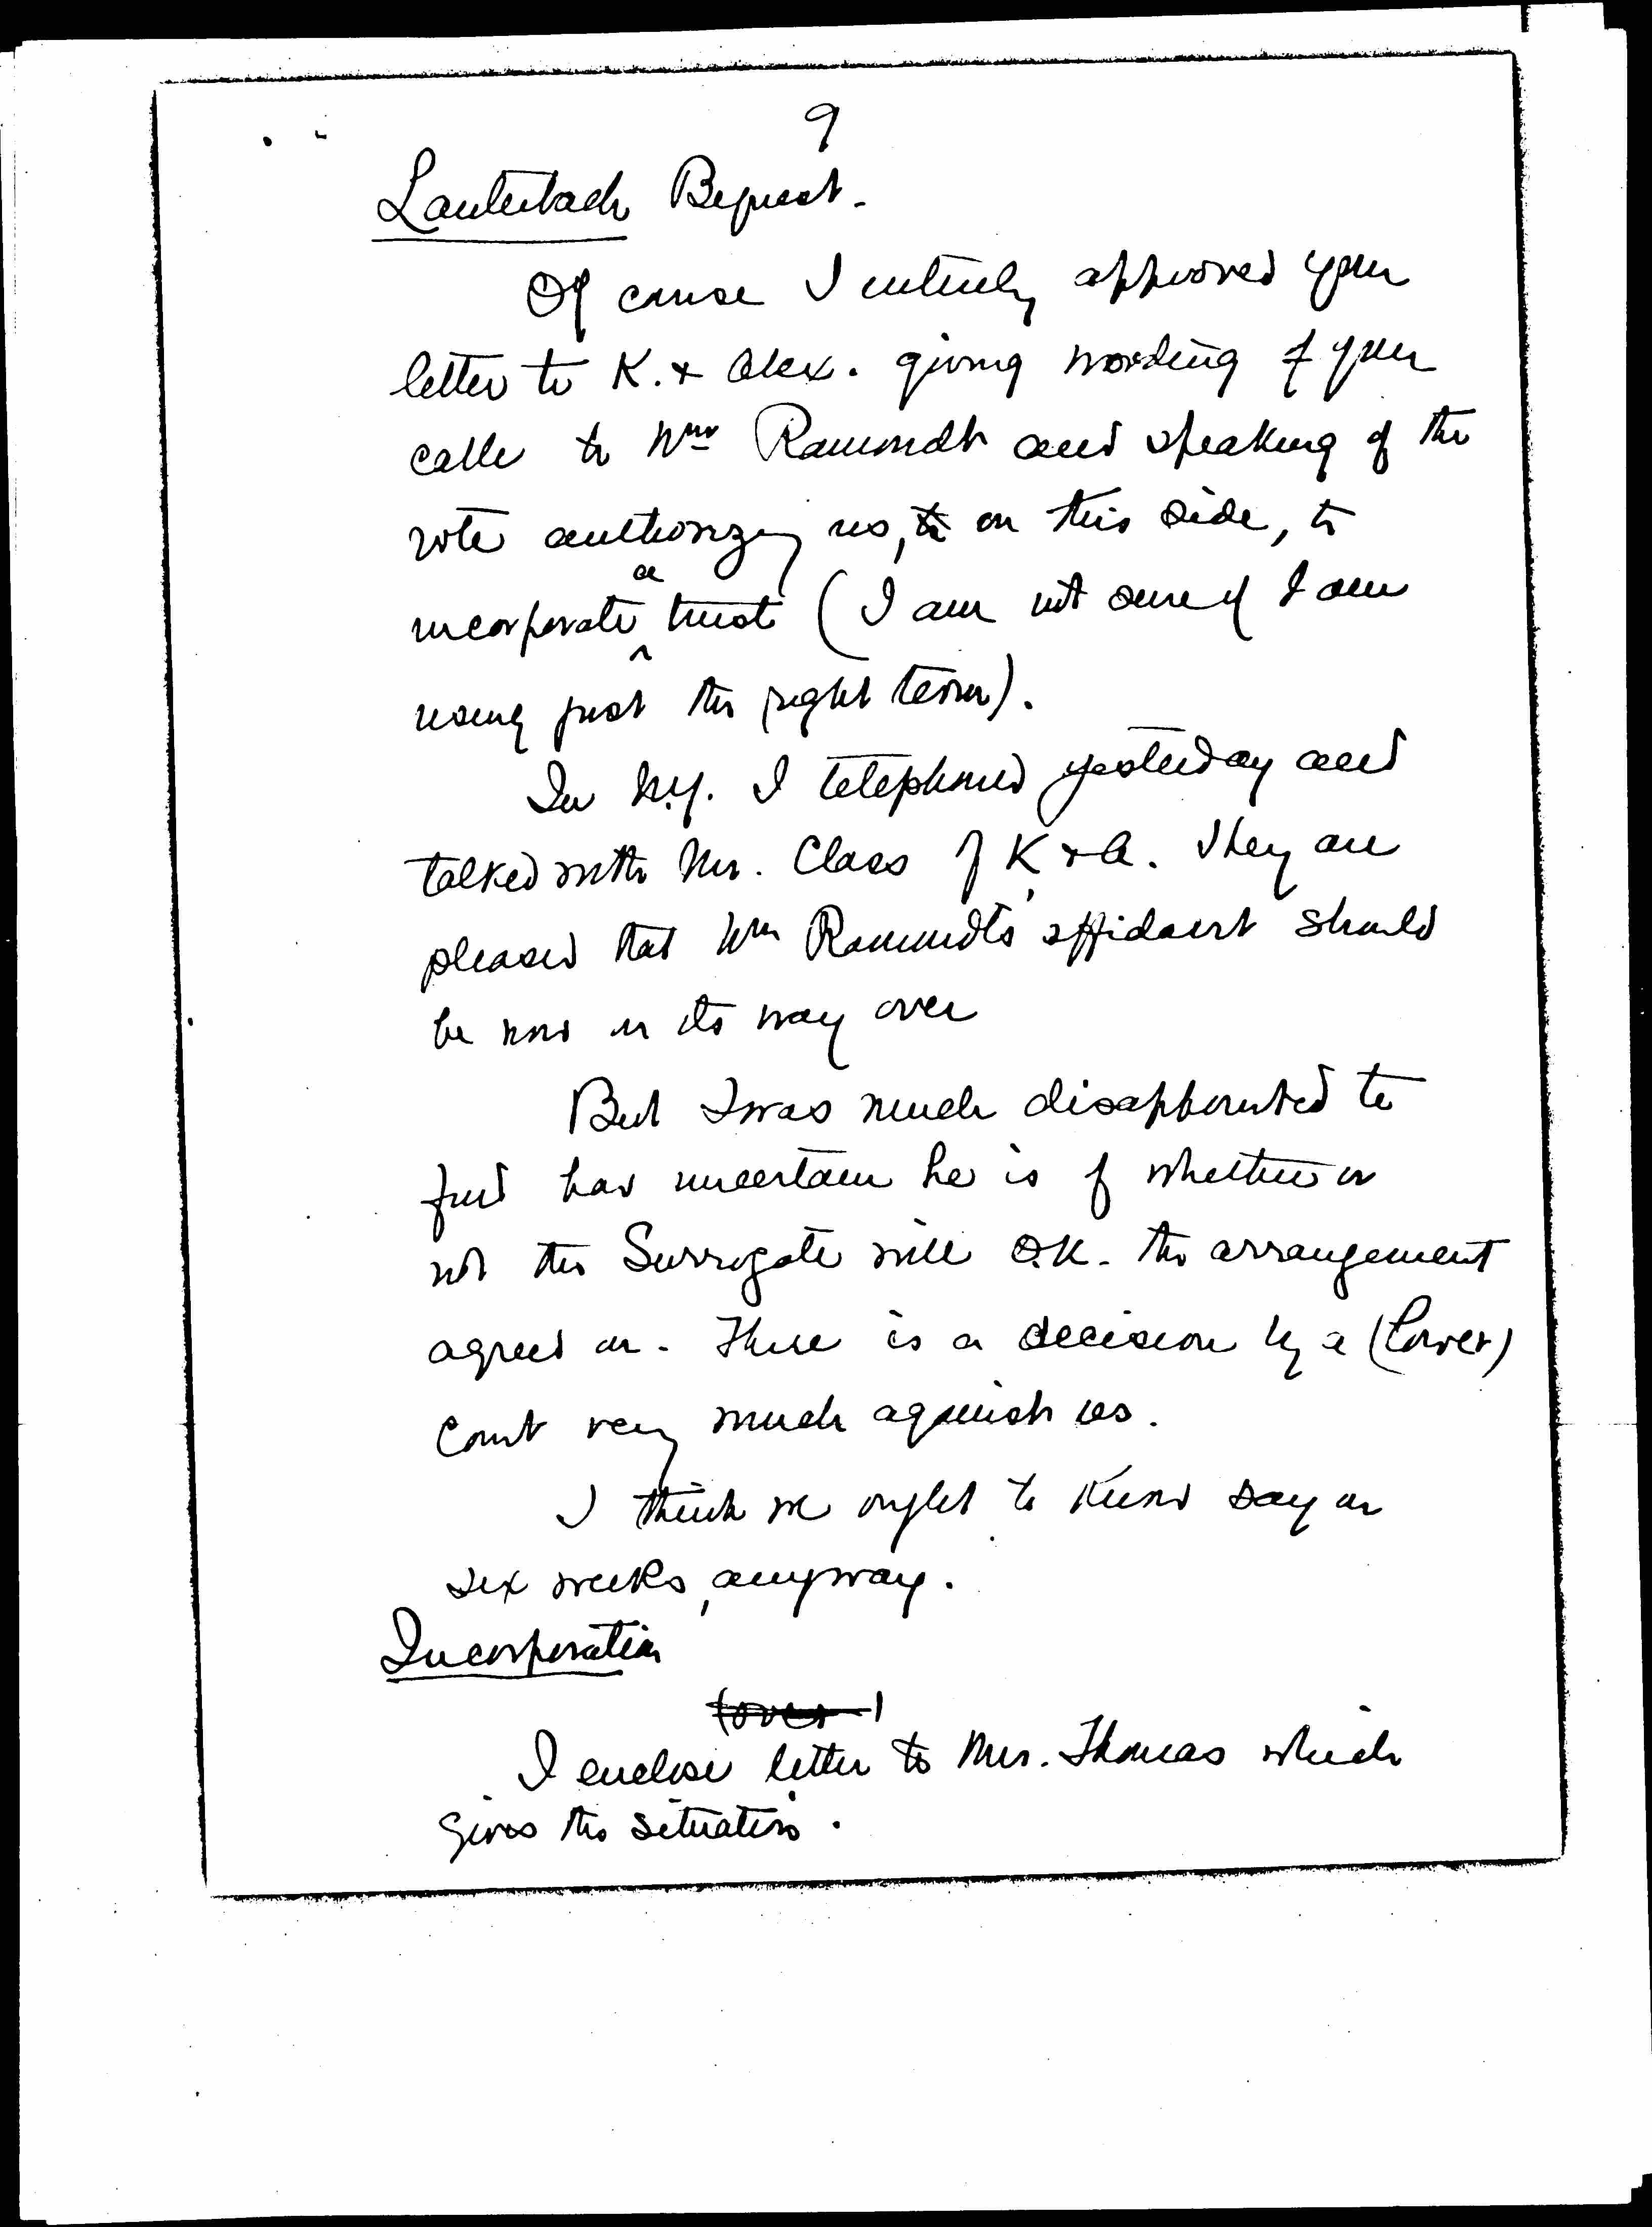 9
Lauterbach Bequest.
Of course I entirely approved your
letter to K. & Alex. giving wording of your
cable to Mme Ramondt and speaking of the
vote authorizing us, to on this side, to
incorporate a trust (I am not sure if I am
using just the right term).
In N.Y. I telephoned yesterday and
talked with Mr. Class of K & A. They are
pleased that Mme Ramondt's affidavit should
be now on its way over
But I was much disappointed to
find how uncertain he is of whether or
not the Surrogate will O.K. the arrangement
agreed on. There is a decision by a (lower)
court very much against us.
I think we ought to know say in
six weeks, anyway.
Incorporation
(over)
I enclose letter to Mrs. Thomas which
gives the situation.